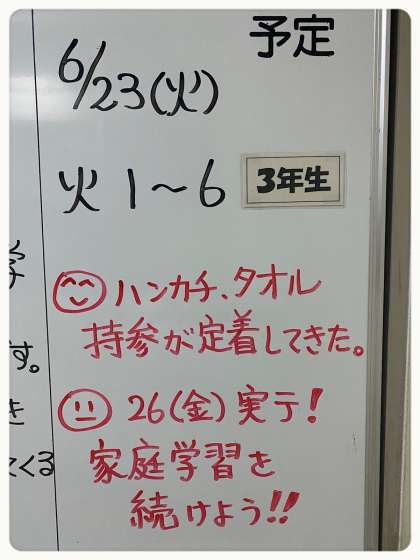 予定
6/23(火)
火 1～6 3年生
ハンカチ、タオル
持参が定着してきた。
26(金)実テ!
家庭学習を
続けよう!!
す。
くる